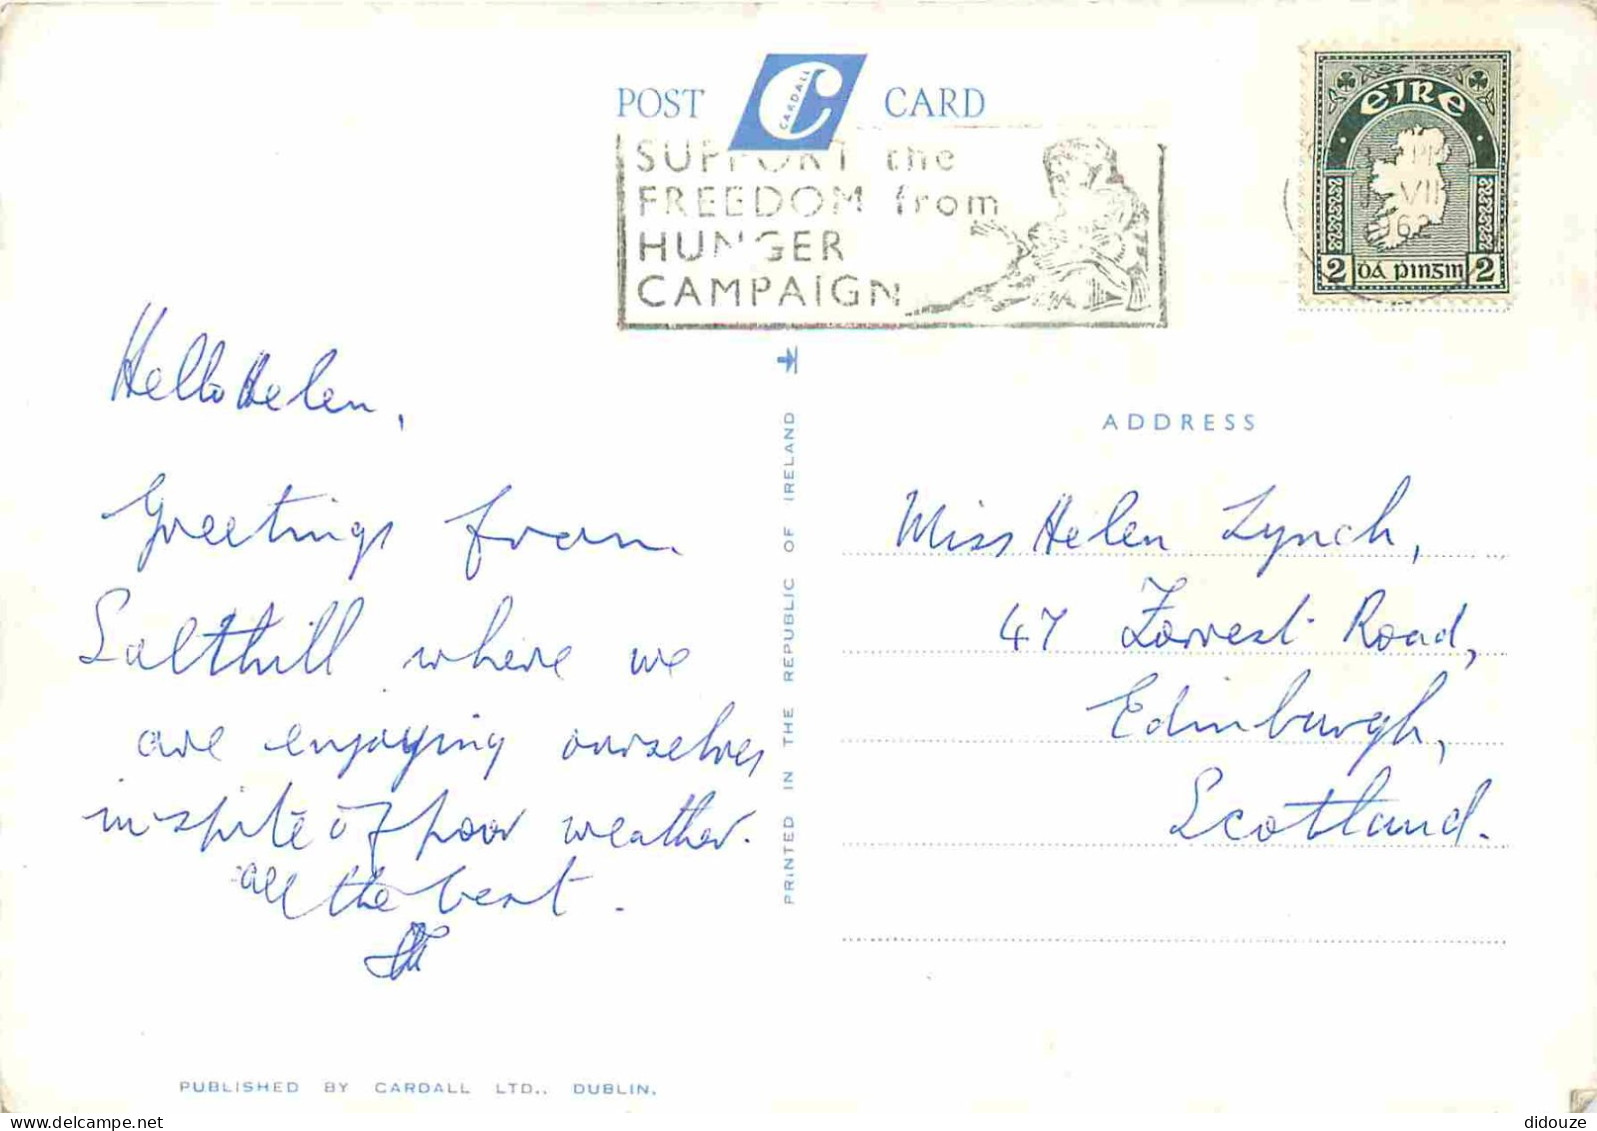 POST CARDALL CARD
SUPPORT the
FREEDOM from
HUNGER
CAMPAIGN
EIRE
PM
VII
962
2 ÓA PINGIN 2
Hello Helen,
Greetings from
Salthill where we
are enjoying ourselves
in spite of poor weather.
All the best.
PRINTED IN THE REPUBLIC OF IRELAND
ADDRESS
Miss Helen Lynch,
47 Forrest Road,
Edinburgh,
Scotland.
PUBLISHED BY CARDALL LTD., DUBLIN.
didouze